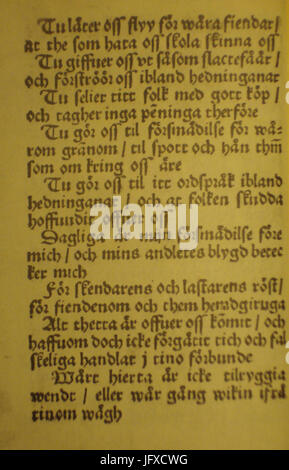 Tu låter oss flyy för wåra fiendar/
at the som hata oss skola skinna oss
Tu giffuer oss vt såsom slactefåår/
och förströör oss ibland hedninganar
Tu selier titt folk med gott köp/
och tagher inga peninga therföre
Tu gör oss til försmädilse för wå-
rom grånom/til spott och hån thm̃
som om kring oss äre
Tu gör oss til itt ordspråk ibland
hedninganar/och at folken skudda
hoffuudit offuer oss
Dagliga är min försmädilse före
mich/och mins andletes blygd betec
ker mich
För skendarens och lastarens röst/
för fiendenom och them hemdgiruga
Alt thetta är offuer oss kömit/och
haffuom doch icke förgätit tich och fal
skeliga handlat j tino förbunde
Wårt hierta är icke tilryggia
wendt/eller wår gång wikin ifrå
tinom wägh
alamy stock photo
JFXCWG
www.alamy.com